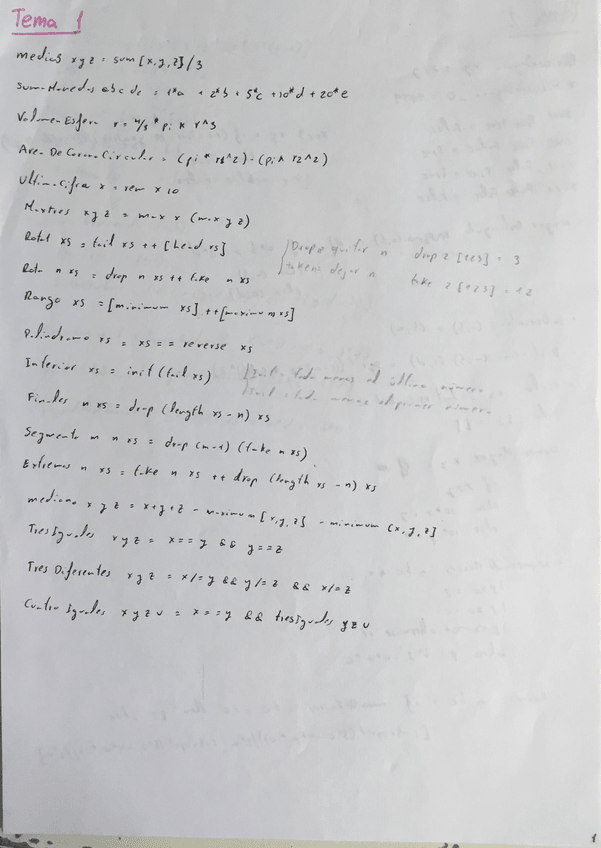 Tema 1
medias x y z = sum [x, y, z] / 3
Suma Monedas a b c d e = 1*a + 2*b + 5*c + 10*d + 20*e
Volumen Esfera r = 4/3 * pi * r^3
Area De Corona Circular = (pi * r1^2) - (pi * r2^2)
Ultima Cifra x = rem x 10
Maxtres x y z = max x (max y z)
Rota1 xs = tail xs ++ [head xs]
Drop = quitar n drop 2 [1 2 3] = 3
Rota n xs = drop n xs ++ take n xs
taken: dejar n take 2 [1 2 3] = 1 2
Rango xs = [minimum xs] ++ [maximum xs]
Palindromo xs = xs == reverse xs
Interior xs = init (tail xs)
Init: todo menos el último número
todo menos el primer número
Finales n xs = drop (length xs - n) xs
Segmento m n xs = drop (m-1) (take n xs)
Extremos n xs = take n xs ++ drop (length xs - n) xs
mediano x y z = x+y+z - maximum [x, y, z] - minimum [x, y, z]
Tres Iguales x y z = x == y && y == z
Tres Diferentes x y z = x /= y && y /= z && x /= z
Cuatro Iguales x y z u = x == y && tresIguales y z u
1